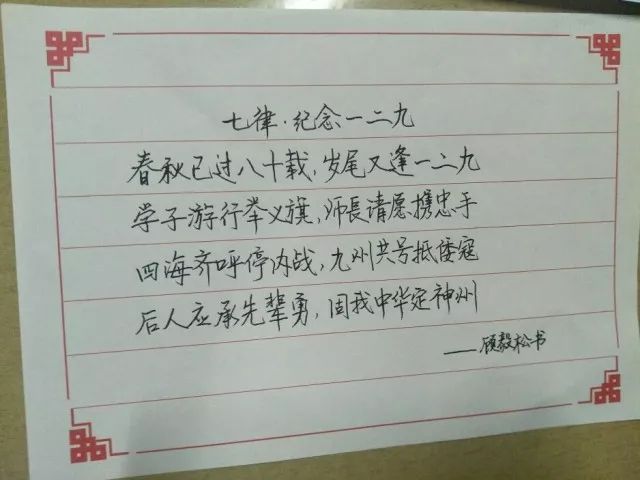 七律·纪念一二九
春秋已过八十载，岁尾又逢一二九
学子游行举义旗，师長请愿携忠手
四海齐呼停内战，九州共号抵倭寇
后人应承先辈勇，固我中华定神州
——顾毅松书